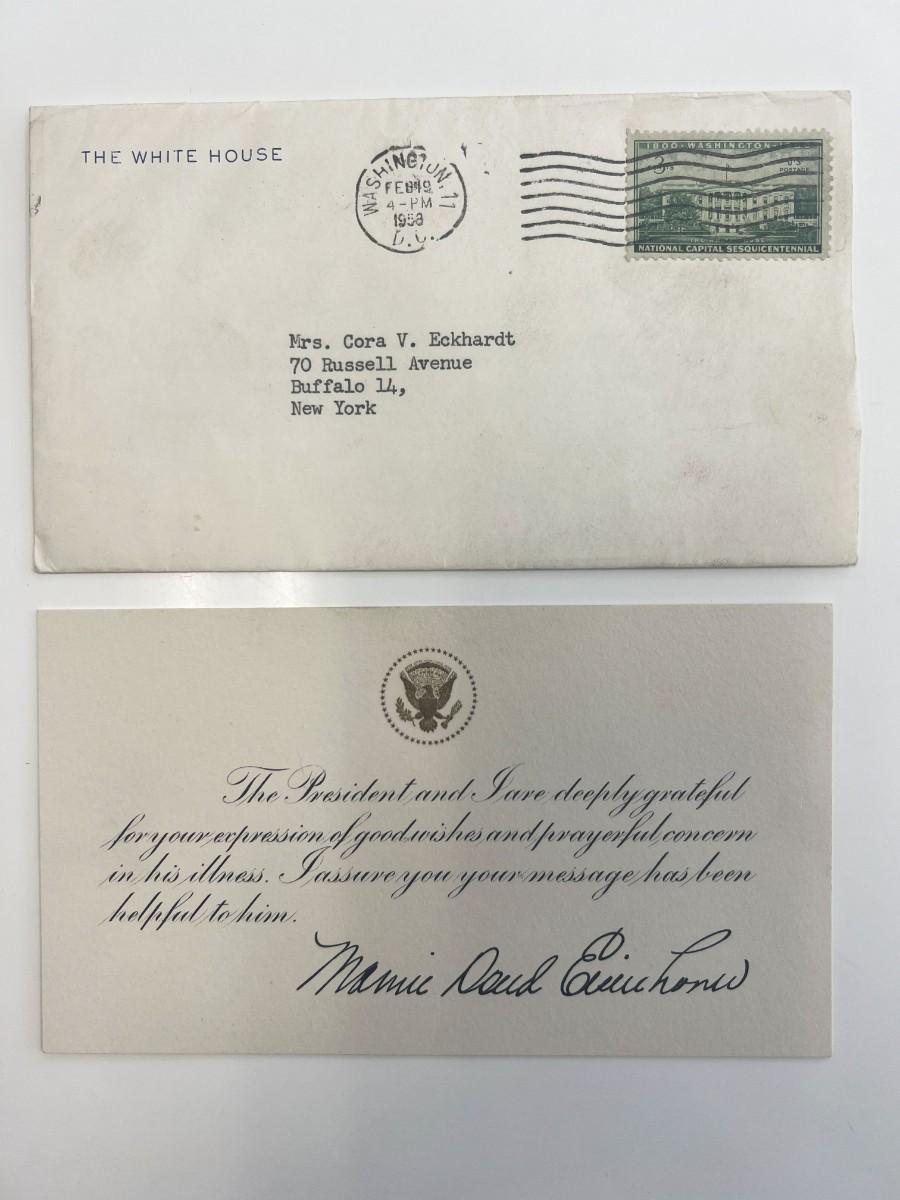 THE WHITE HOUSE
WASHINGTON, 11
FEB 19
4-PM
1958
D.C.
1800·WASHINGTON·
3
U.S.
POSTAGE
NATIONAL CAPITAL SESQUICENTENNIAL
Mrs. Cora V. Eckhardt
70 Russell Avenue
Buffalo 14,
New York
The President and I are deeply grateful
for your expression of good wishes and prayerful concern
in his illness. I assure you your message has been
helpful to him.
Mamie Doud Eisenhower